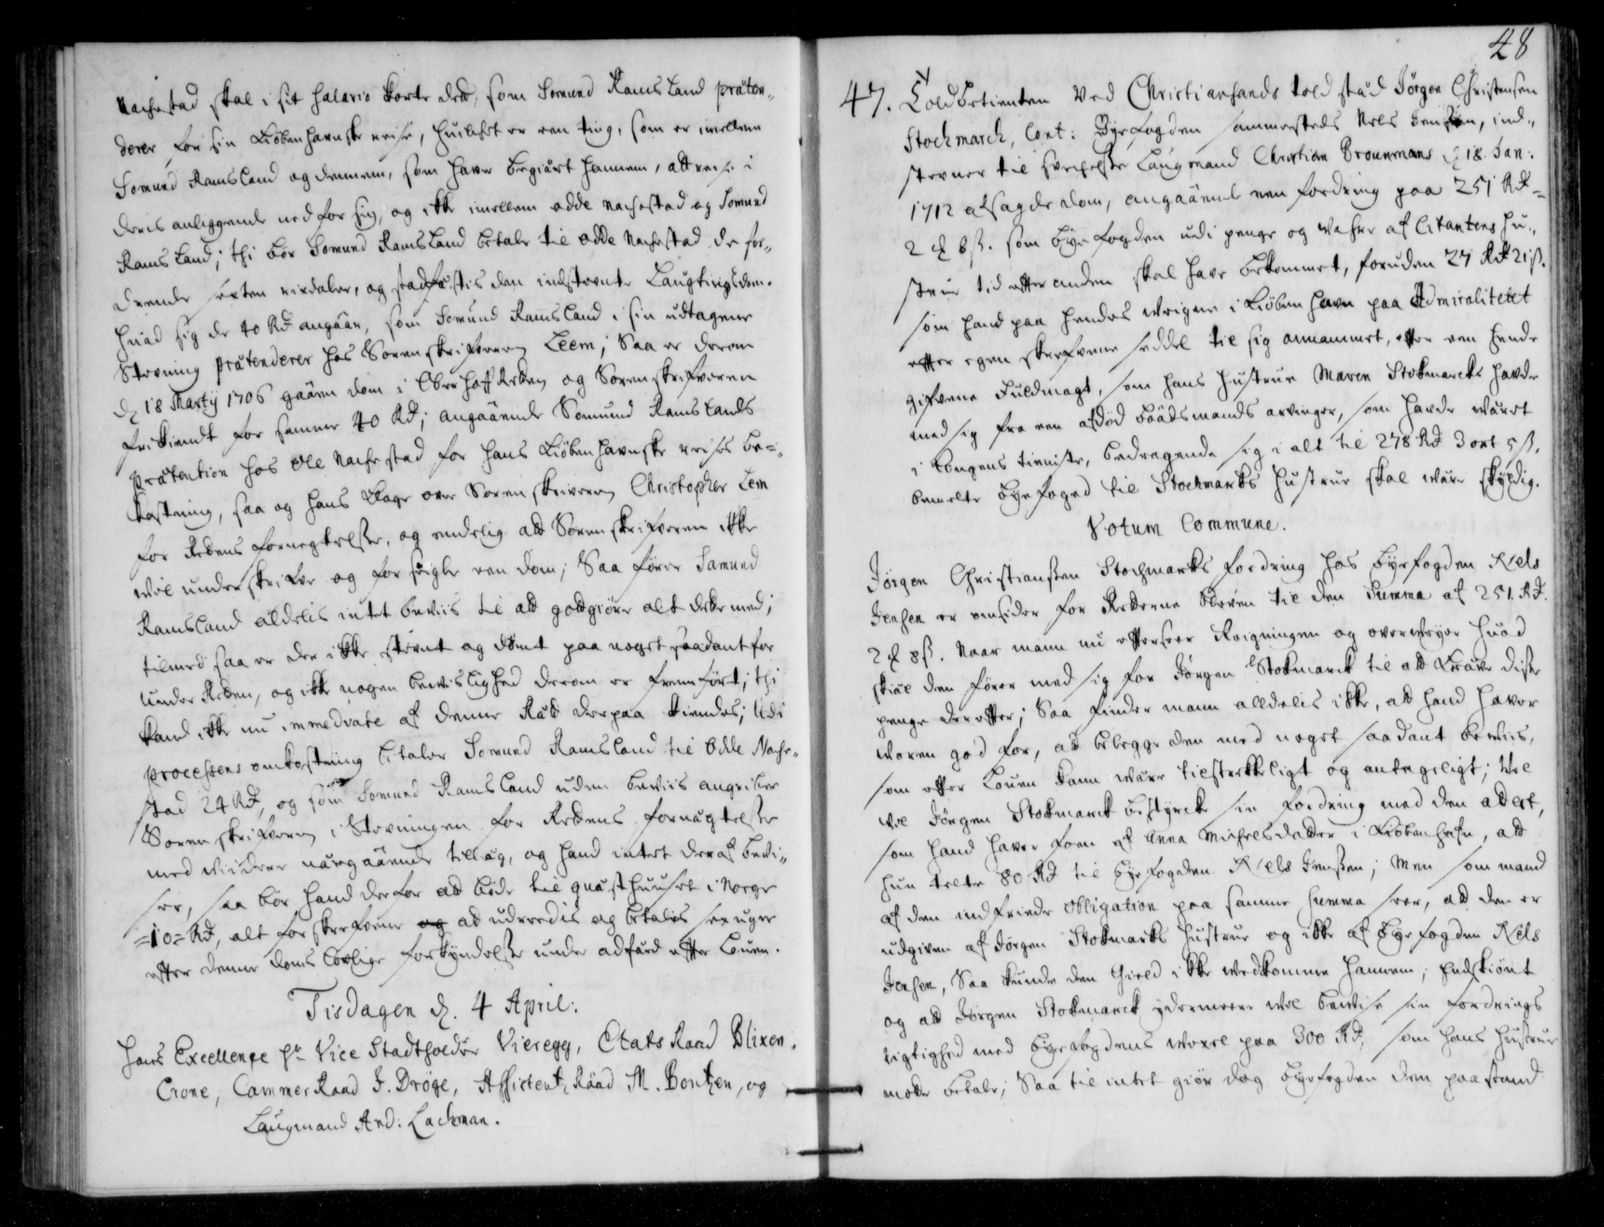 Nachestad skal i sit Salario korte der, som Somund Ramsland præten„
derer for sin Kiøbenhavnske reise, huilket er een ting, som er imellem
Somund Ramsland og dennem, som haver begiært hannem, att reise i
deris anliggende ned for sig, og ikke imellem Odde Nachestad og Somund
Ramsland; thi bør Somund Ramsland betale til Odde Nachestad de for„
drende sexten rixdaler, og stadfestis den indstevnte Laugtings dom.
Huad sig de 40 Rd angaar, som Somund Ramsland i sin udtagene
Stevning prætenderer hos Sorenskrifveren Leem; Saa er derom
d. 18 Martij 1706 gaaen dom i OberHoffRetten og Sorenskrifveren
frikiendt for samme 40 Rd; angaaende Somund Ramslands
prætention hos Ole Nachestad for hans Kiøbenhavnske reises be=
kostning, saa og hans Klage over Sorenskriveren Christopher Lem
for Rettens fornegtelse, og endelig att Sorenskrifveren ikke
wil underskrifve og forseigle een dom; Saa fører Samund
Ramsland aldelis intet beviis til att godtgiøre alt dette med;
tilmed saa er der ikke stevnt og dømt paa noget saadant for
under Retten, og ikke nogen bevislighed derom er fremført; thi
kand ikke nu immediate af denne Rætt derpaa kiendes; Udi
processens omkostning betaler Somund Ramsland til Odde Nache„
stad 24 Rd, og som Somund Ramsland uden beviis angriber
Sorenskrifveren i Stevningen for Rettens fornægtelse
med widere nærgaaende tillæg, og hand intet deraf bevi„
ser, saa bør hand derfor att bøde til quæsthuuset i Norge
=10= Rd, alt forskrefvene og at udreedis og betales sex uger
effter denne doms lovlige forkyndelse under adfærd effter Louen.
Tisdagen d. 4 April:
Hans Excellence Hr. Vice Stadtholder Vieregg, Etats Raad Blixen.
Crone, Cammer Raad J. Dröge, Assistent Raad M. Bentzen, og
Laugmand And: Lachman.
48
47. Toldbetienten Ved Christiansands told stæd Jörgen Christensen
Stochmarch, Cont: Byefogden sammesteds Nels Jensen, ind„
stevner til svechelse Laugmand Christian Brounmans d. 18. Jan:
1712 afsagde dom, angaaende een fordring paa 251 Rd=
2 8 ß. som byefogden udi penge og wahre af Citantens Hu„
strue tid effter anden skal have bekommet, foruden 27 Rd 21 ß.
som hand paa hendes weigne i Kiøbenhavn paa Admiralitetet
effter egen skrefvene seddel til sig annammet, effter een hende
gifvene Fuldmagt, som hans Hustrue Maren Stokmarcks havde
med sig fra een afdød baadsmands arvinger, som havde wäret
i Kongens tieniste, bedragende sig i alt til 278 Rd 3 ort 5 ß,
bemelte byefoged til Stochmarks Hustrue skal wäre skyldig.
Votum Commune.
Jörgen Christiansen Stochmarks fordring hos byefogden Nels
Jensen er omsider for Retterne bleven til den Summa af 251. Rd.
2 8 ß. Naar mann nu effterseer Reigningen og overveyer huad
skiæl den fører med sig for Jörgen Stokmarck til att kræve disse
penge dereffter; Saa finder mann alldelis ikke, att hand haver
woren god for, att belegge den med noget saadant beviis,
som effter Louen kand wäre tilstrekkeligt og antageligt; Vel
vil Jörgen Stokmarck bestyrcke sin fordring med den attest,
som hand haver faaet af Anna Michelsdatter i Kiøbenhafn, att
hun telte 80 Rd til byefogden Niels Jenssen; Men som mand
af den indfriede obligation paa samme Summa seer, att den er
udgiven af Jörgen Stokmarks Hustrue og ikke af byefogden Niels
Jensen, Saa kunde den Gield ikke wedkomme hannem; Endskiønt
og att Jörgen Stokmarck ydermeere wil bevise sin fordrings
rigtighed med byefogdens wexel paa 300 Rd, som hans Hustrue
motte betale; Saa til intet giør dog byefogden den paastand